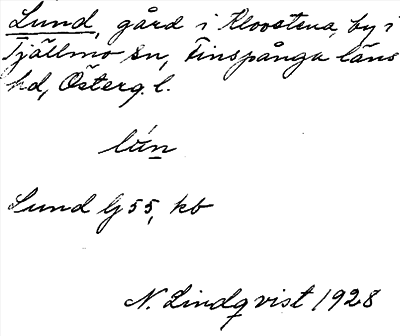 Lund, gård i Kloostena, by i
Tjällmo sn, Finspånga läns
hd, Österg. l.
lún
Lund G 55, kb
N. Lindqvist 1928